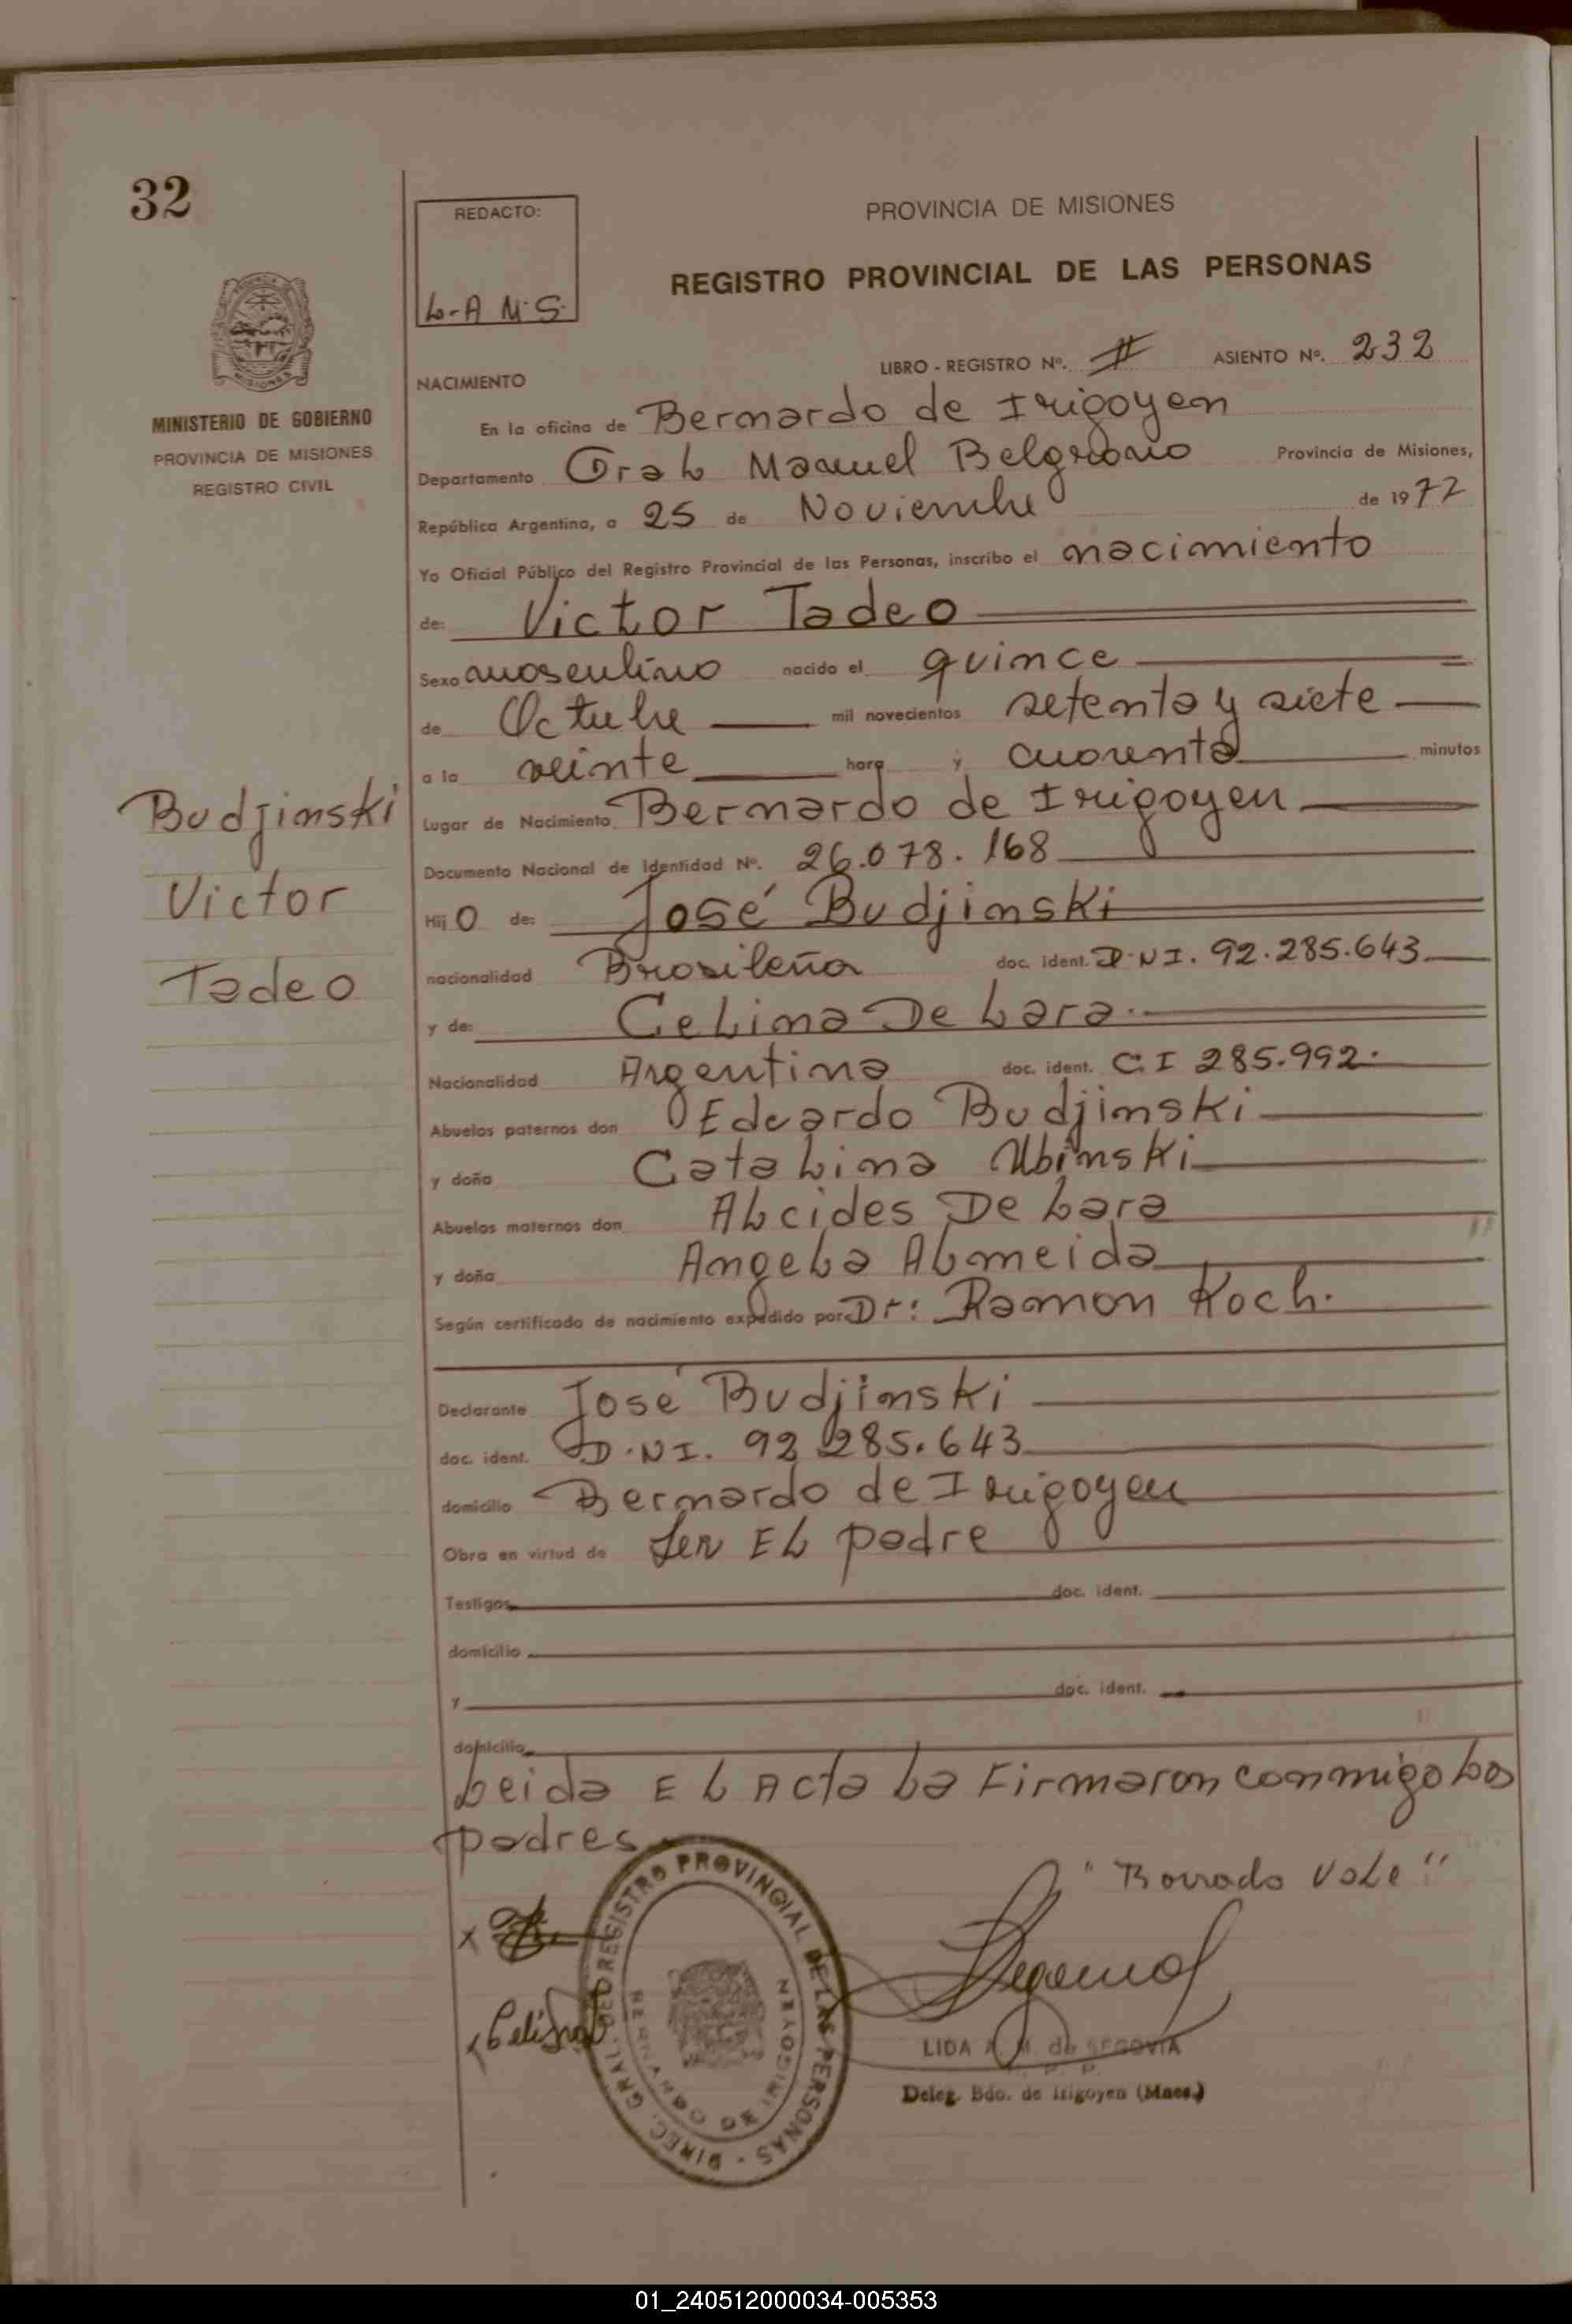 32
REDACTO:
L-A M.S.
PROVINCIA DE MISIONES
REGISTRO PROVINCIAL DE LAS PERSONAS
MINISTERIO DE GOBIERNO
PROVINCIA DE MISIONES
REGISTRO CIVIL
LIBRO - REGISTRO Nº. II ASIENTO Nº. 232
NACIMIENTO
En la oficina de Bernardo de Irigoyen
Departamento Gral Manuel Belgrano Provincia de Misiones,
República Argentina, a 25 de Noviembre de 1977
Yo Oficial Público del Registro Provincial de las Personas, inscribo el nacimiento
de: Victor Tadeo
Sexo masculino nacido el quince
de Octubre mil novecientos setenta y siete
a la veinte hora y cuarenta minutos
Budjinski
Victor
Tadeo
Lugar de Nacimiento Bernardo de Irigoyen
Documento Nacional de Identidad Nº. 26.078.168
Hijo de: José Budjinski
nacionalidad Brasileña doc. ident. D.N.I. 92.285.643
y de: Celina De Lara
Nacionalidad Argentina doc. ident. C.I 285.992.
Abuelos paternos don Eduardo Budjinski
y doña Catalina Ubinski
Abuelos maternos don Alcides De Lara
y doña Angela Almeida
Según certificado de nacimiento expedido por Dr: Ramon Koch.
Declarante José Budjinski
doc. ident. D.N.I. 92 285.643
domicilio Bernardo de Irigoyen
Obra en virtud de ser El padre
Testigos doc. ident.
domicilio
y doc. ident.
domicilio
Leida El Acta La Firmaron conmigo Los
padres.
"Borrado Vale"
DIREC. GRAL. DEL REGISTRO PROVINCIAL DE LAS PERSONAS
BERNARDO DE IRIGOYEN
LIDA A. M. de SEGOVIA
Deleg. Bdo. de Irigoyen (Mnes.)
01_240512000034-005353